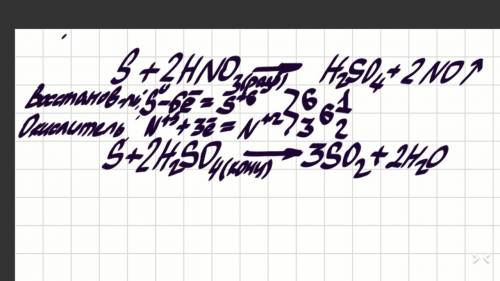 S + 2HNO₃(разб) ⟶ H₂SO₄ + 2NO↑
Восстанов-ль: S⁰ - 6ē = S⁺⁶ | 6 | 6 | 1
Окислитель: N⁺⁵ + 3ē = N⁺² | 3 | 2
S + 2H₂SO₄(конц) ⟶ 3SO₂ + 2H₂O